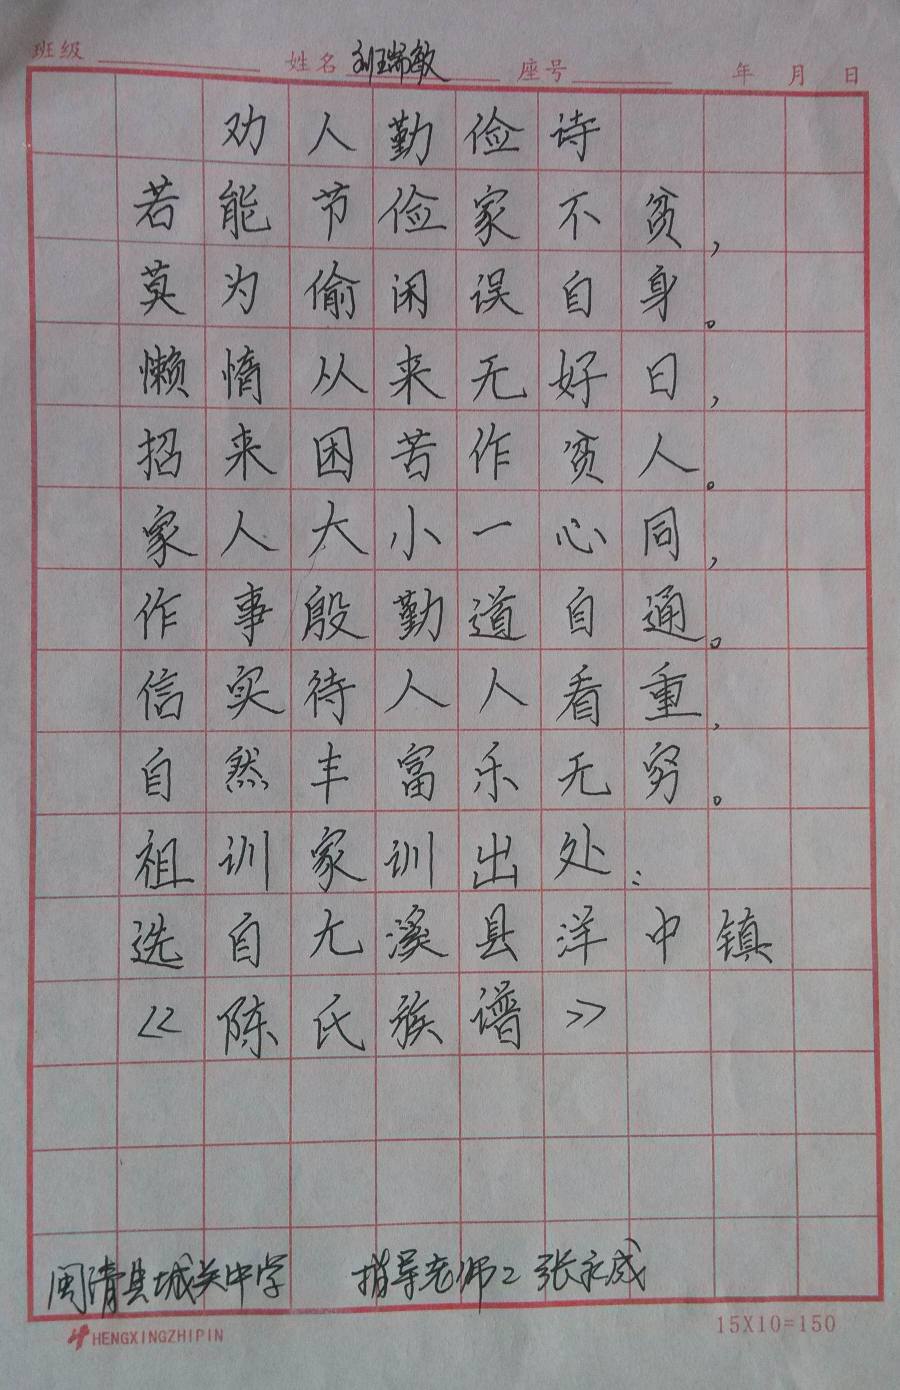 班级 姓名 刘瑞敏 座号 年 月 日
劝人勤俭诗
若能节俭家不贫，
莫为偷闲误自身。
懒惰从来无好日，
招来困苦作贫人。
家人大小一心同，
作事殷勤道自通。
信实待人人看重，
自然丰富乐无穷。
祖训家训出处：
选自尤溪县洋中镇
《陈氏族谱》
闽清县城关中学 指导老师：张永成
HENGXINGZHIPIN 15X10=150